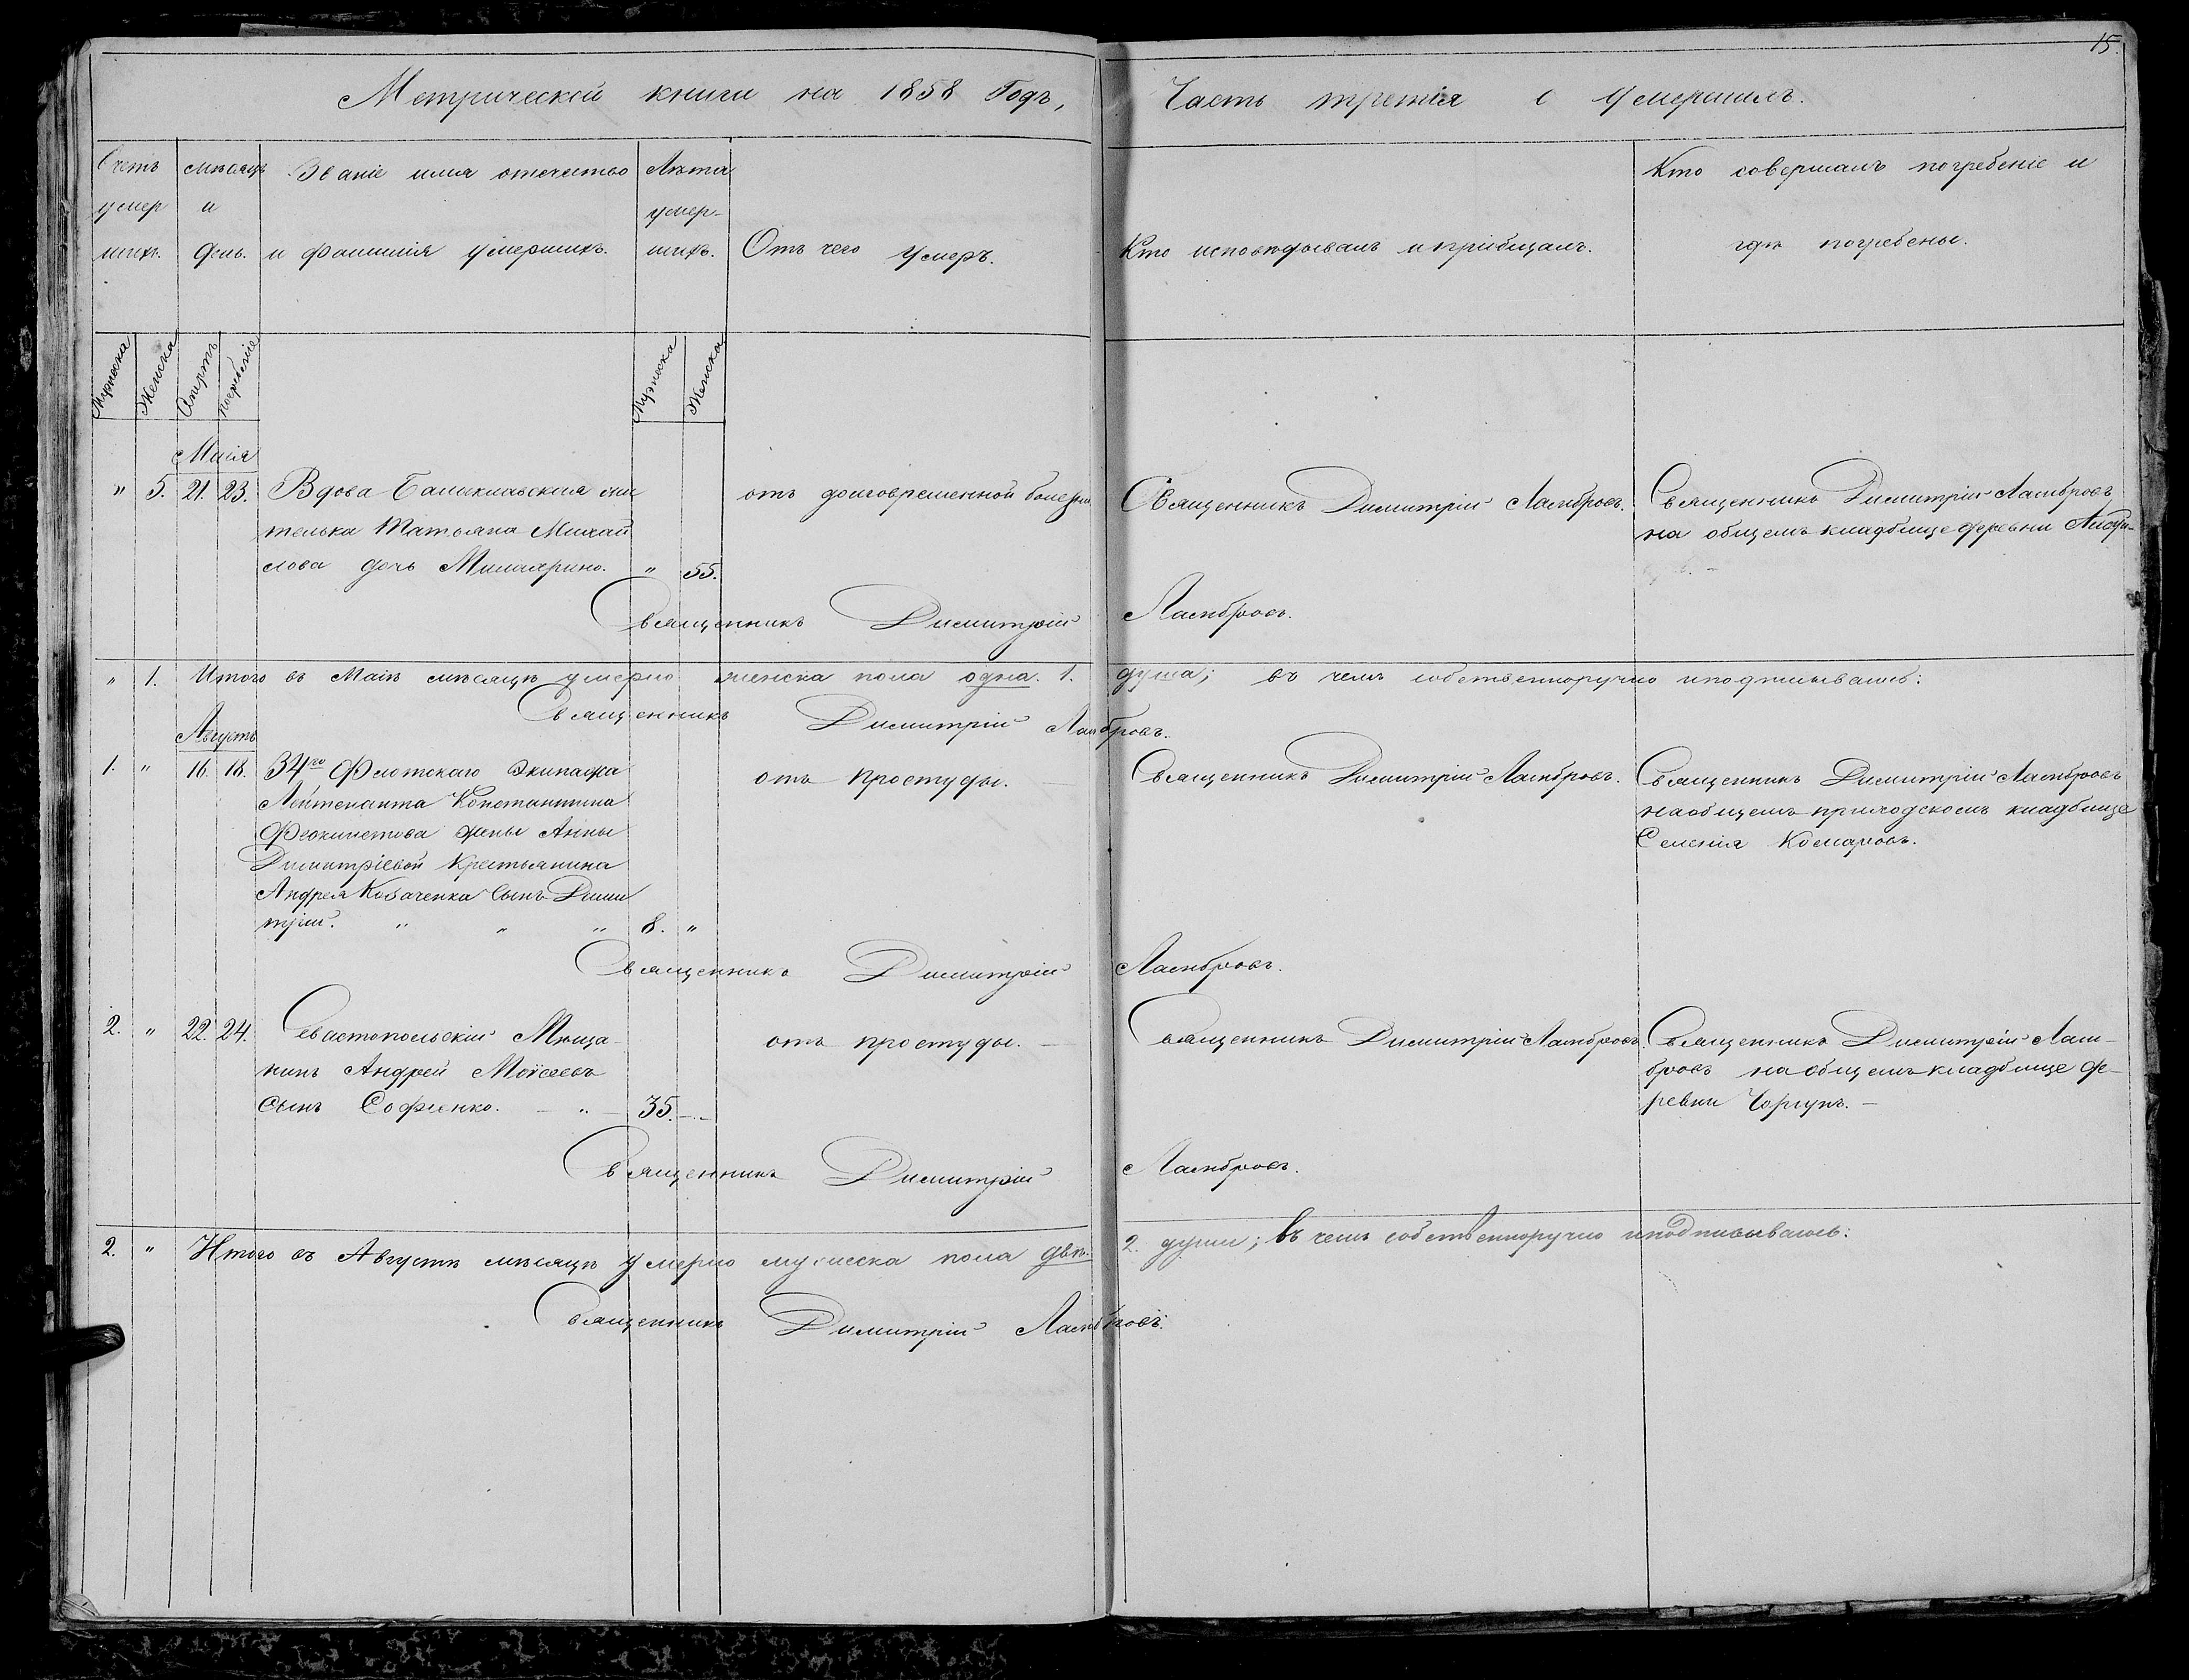 15.
Метрической книги на 1858 Годъ, Часть третія о Умершихъ.
Счетъ умер шихъ.
Мѣсяцъ и день.
Званіе имя отечество и фамилія умершихъ.
Лѣта умер- шихъ.
Отъ чего умеръ.
Кто исповѣдывалъ и пріобщалъ.
Кто совершалъ погребеніе и гдѣ погребены.
Мужска Женска Смерть погребеніе Мужска Женска
Маія
" 5. 21. 23. Вдова Балаклавская жи
телька Татьяна Михай
лова дочь Миларино. " 55.
отъ долговременной болезни
Священникъ Димитрій Ламбровъ.
Священникъ Димитрій Ламбровъ
на общемъ кладбище деревни
Священникъ Димитрій Ламбровъ.
" 1. Итого въ Маіѣ мѣсяцѣ умерло женска пола одна. 1. душа; въ чемъ собственноручно и подписываюсь:
Священникъ Димитрій Ламбровъ.
Августъ
1. " 16. 18. 34го Флотскаго Экипажа
Лейтенанта Константина
Феоктистова жены Анны
Димитріевой Крестьянина
Андрея Козаченка Сынъ Дими
трій. " " " 8. "
отъ простуды.
Священникъ Димитрій Ламбровъ.
Священникъ Димитрій Ламбровъ
на общемъ приходскомъ кладбище
Селенія Комаровъ.
Священникъ Димитрій Ламбровъ.
2. " 22. 24. Севастопольскій Мѣща-
нинъ Андрей Моисеевъ
Сынъ Софіенко. — " — 35. —
отъ простуды. —
Священникъ Димитрій Ламбровъ.
Священникъ Димитрій Лам-
бровъ на общемъ кладбище де-
ревни Чоргунъ. —
Священникъ Димитрій Ламбровъ.
2. " Итого въ Августѣ мѣсяцѣ умерло мужеска пола двѣ. 2. души; въ чемъ собственноручно и подписываюсь:
Священникъ Димитрій Ламбровъ.